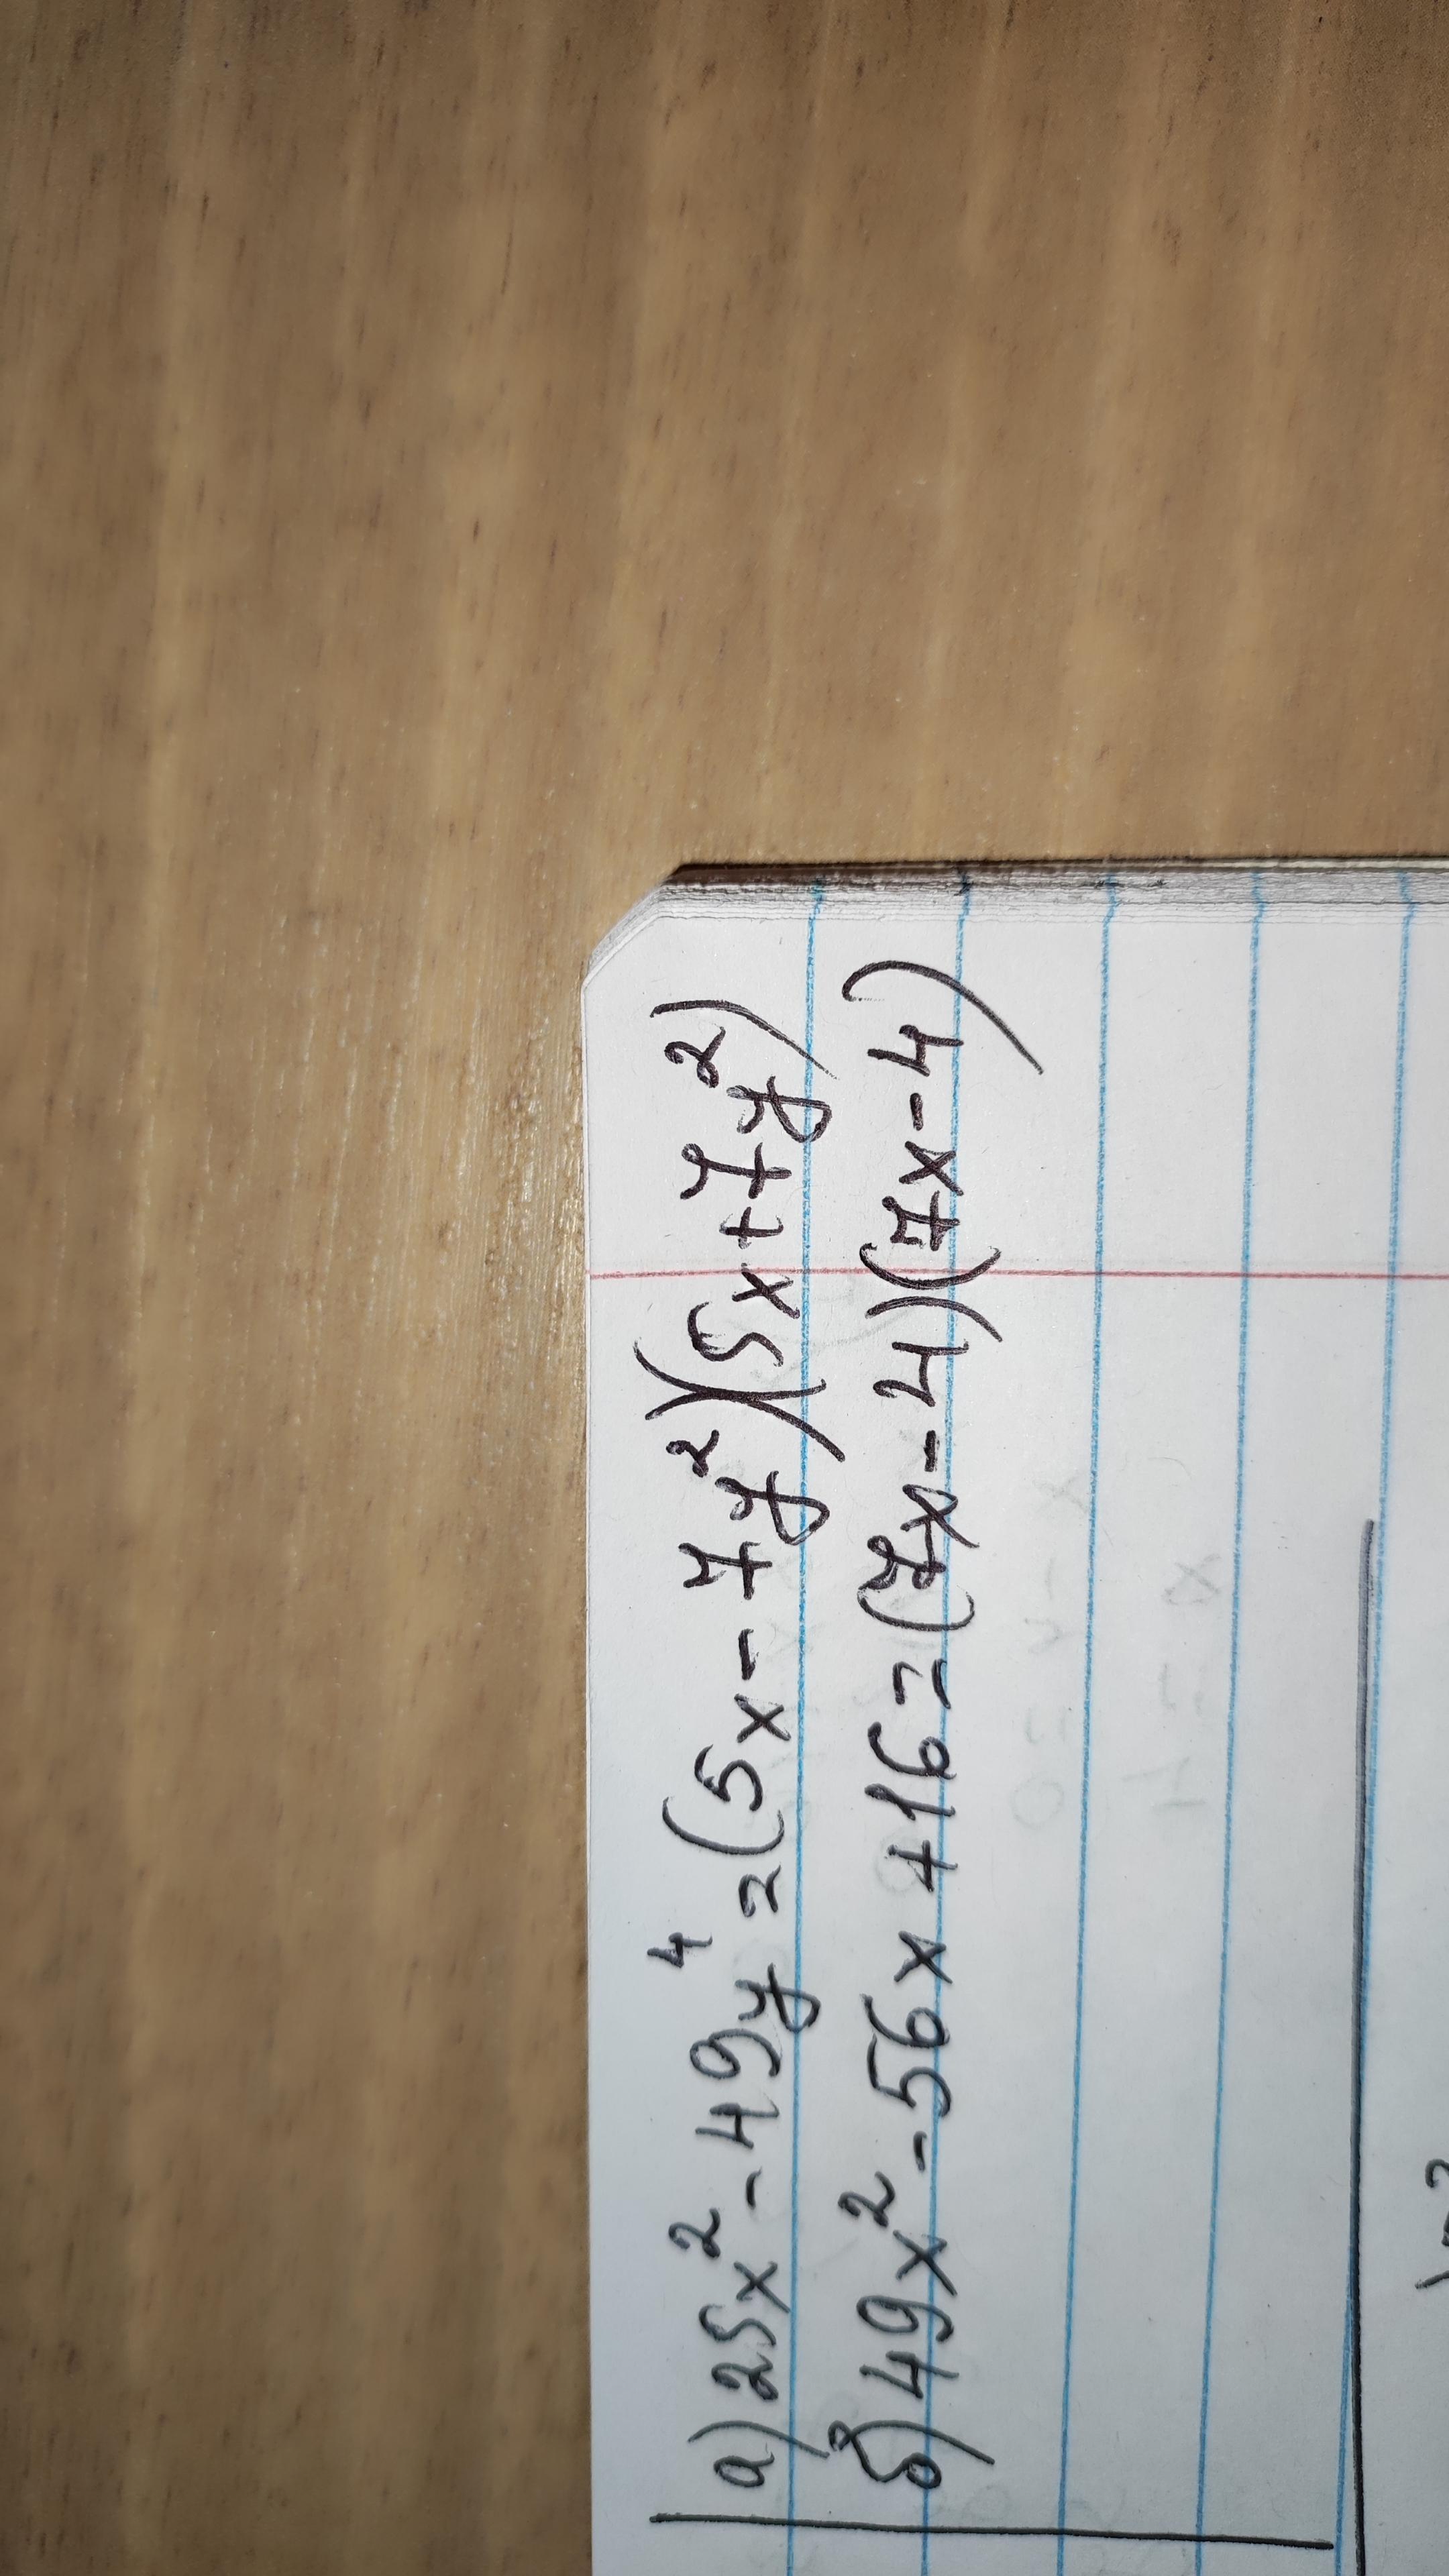 а) 25x² - 49y⁴ = (5x - 7y²)(5x + 7y²)
б) 49x² - 56x + 16 = (7x - 4)(7x - 4)